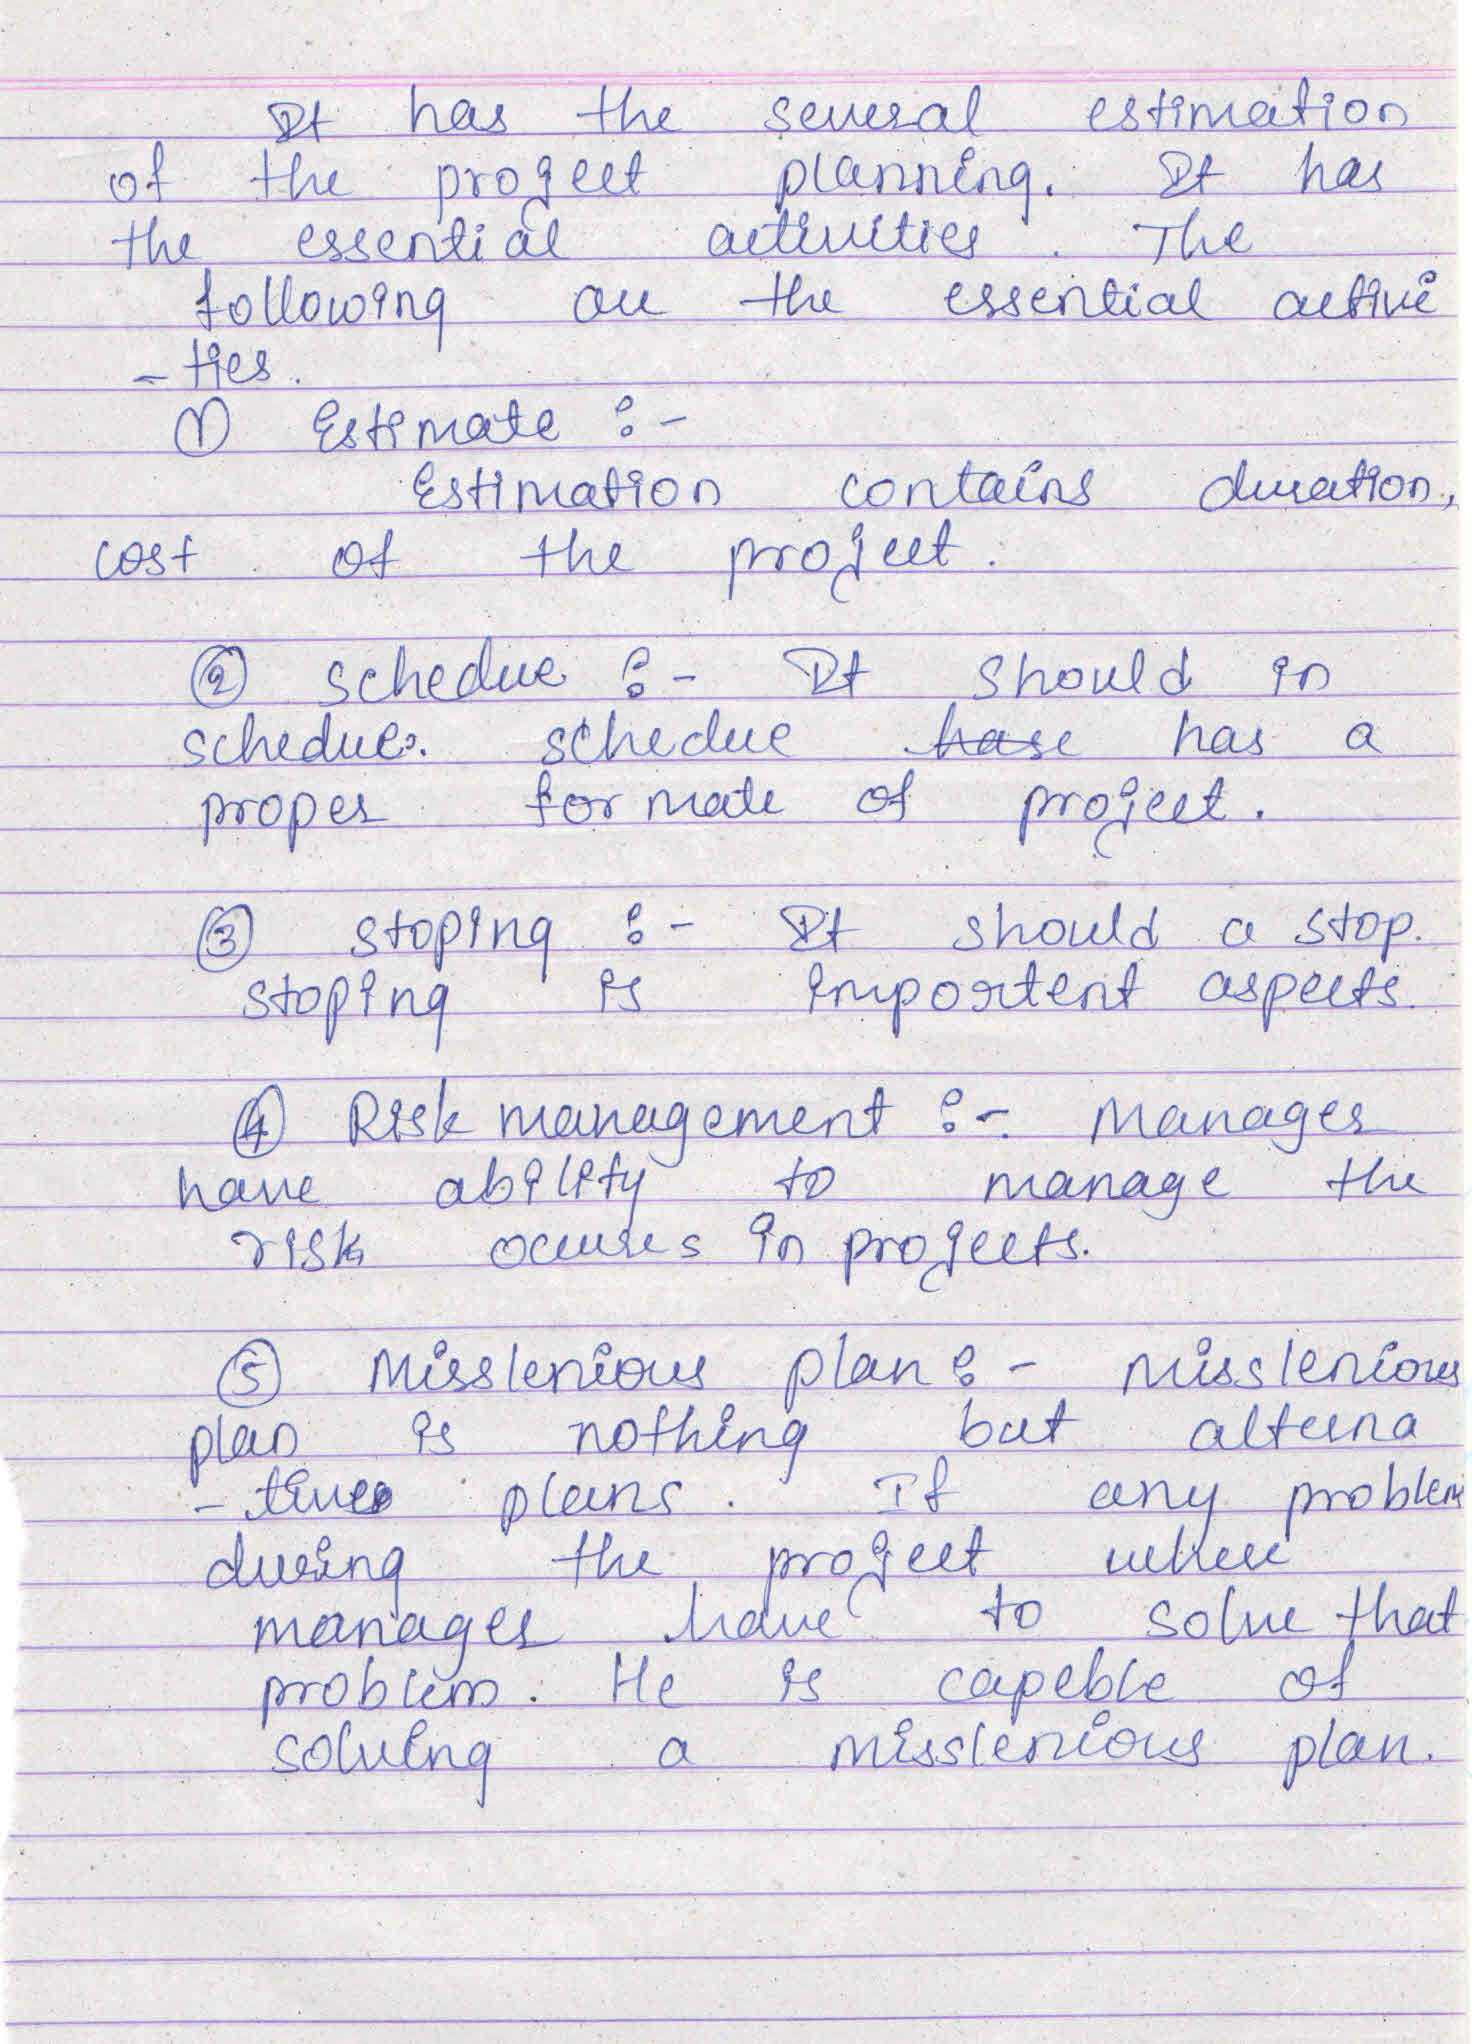 It has the several estimation
of the project planning. It has
the essential activities. The
following are the essential activi
- ties.
① Estimate :-
Estimation contains duration,
cost of the project.
② schedue :- It should in
schedue. schedue hase has a
proper formate of project.
③ stoping :- It should a stop.
stoping is importent aspects.
④ Risk management :-. Manager
have ability to manage the
risk occures in projects.
⑤ Misslenious plan :- misslenious
plan is nothing but alterna
- tive plans. If any problem
during the project where
manager have to solve that
problem. He is capeble of
solving a misslenious plan.